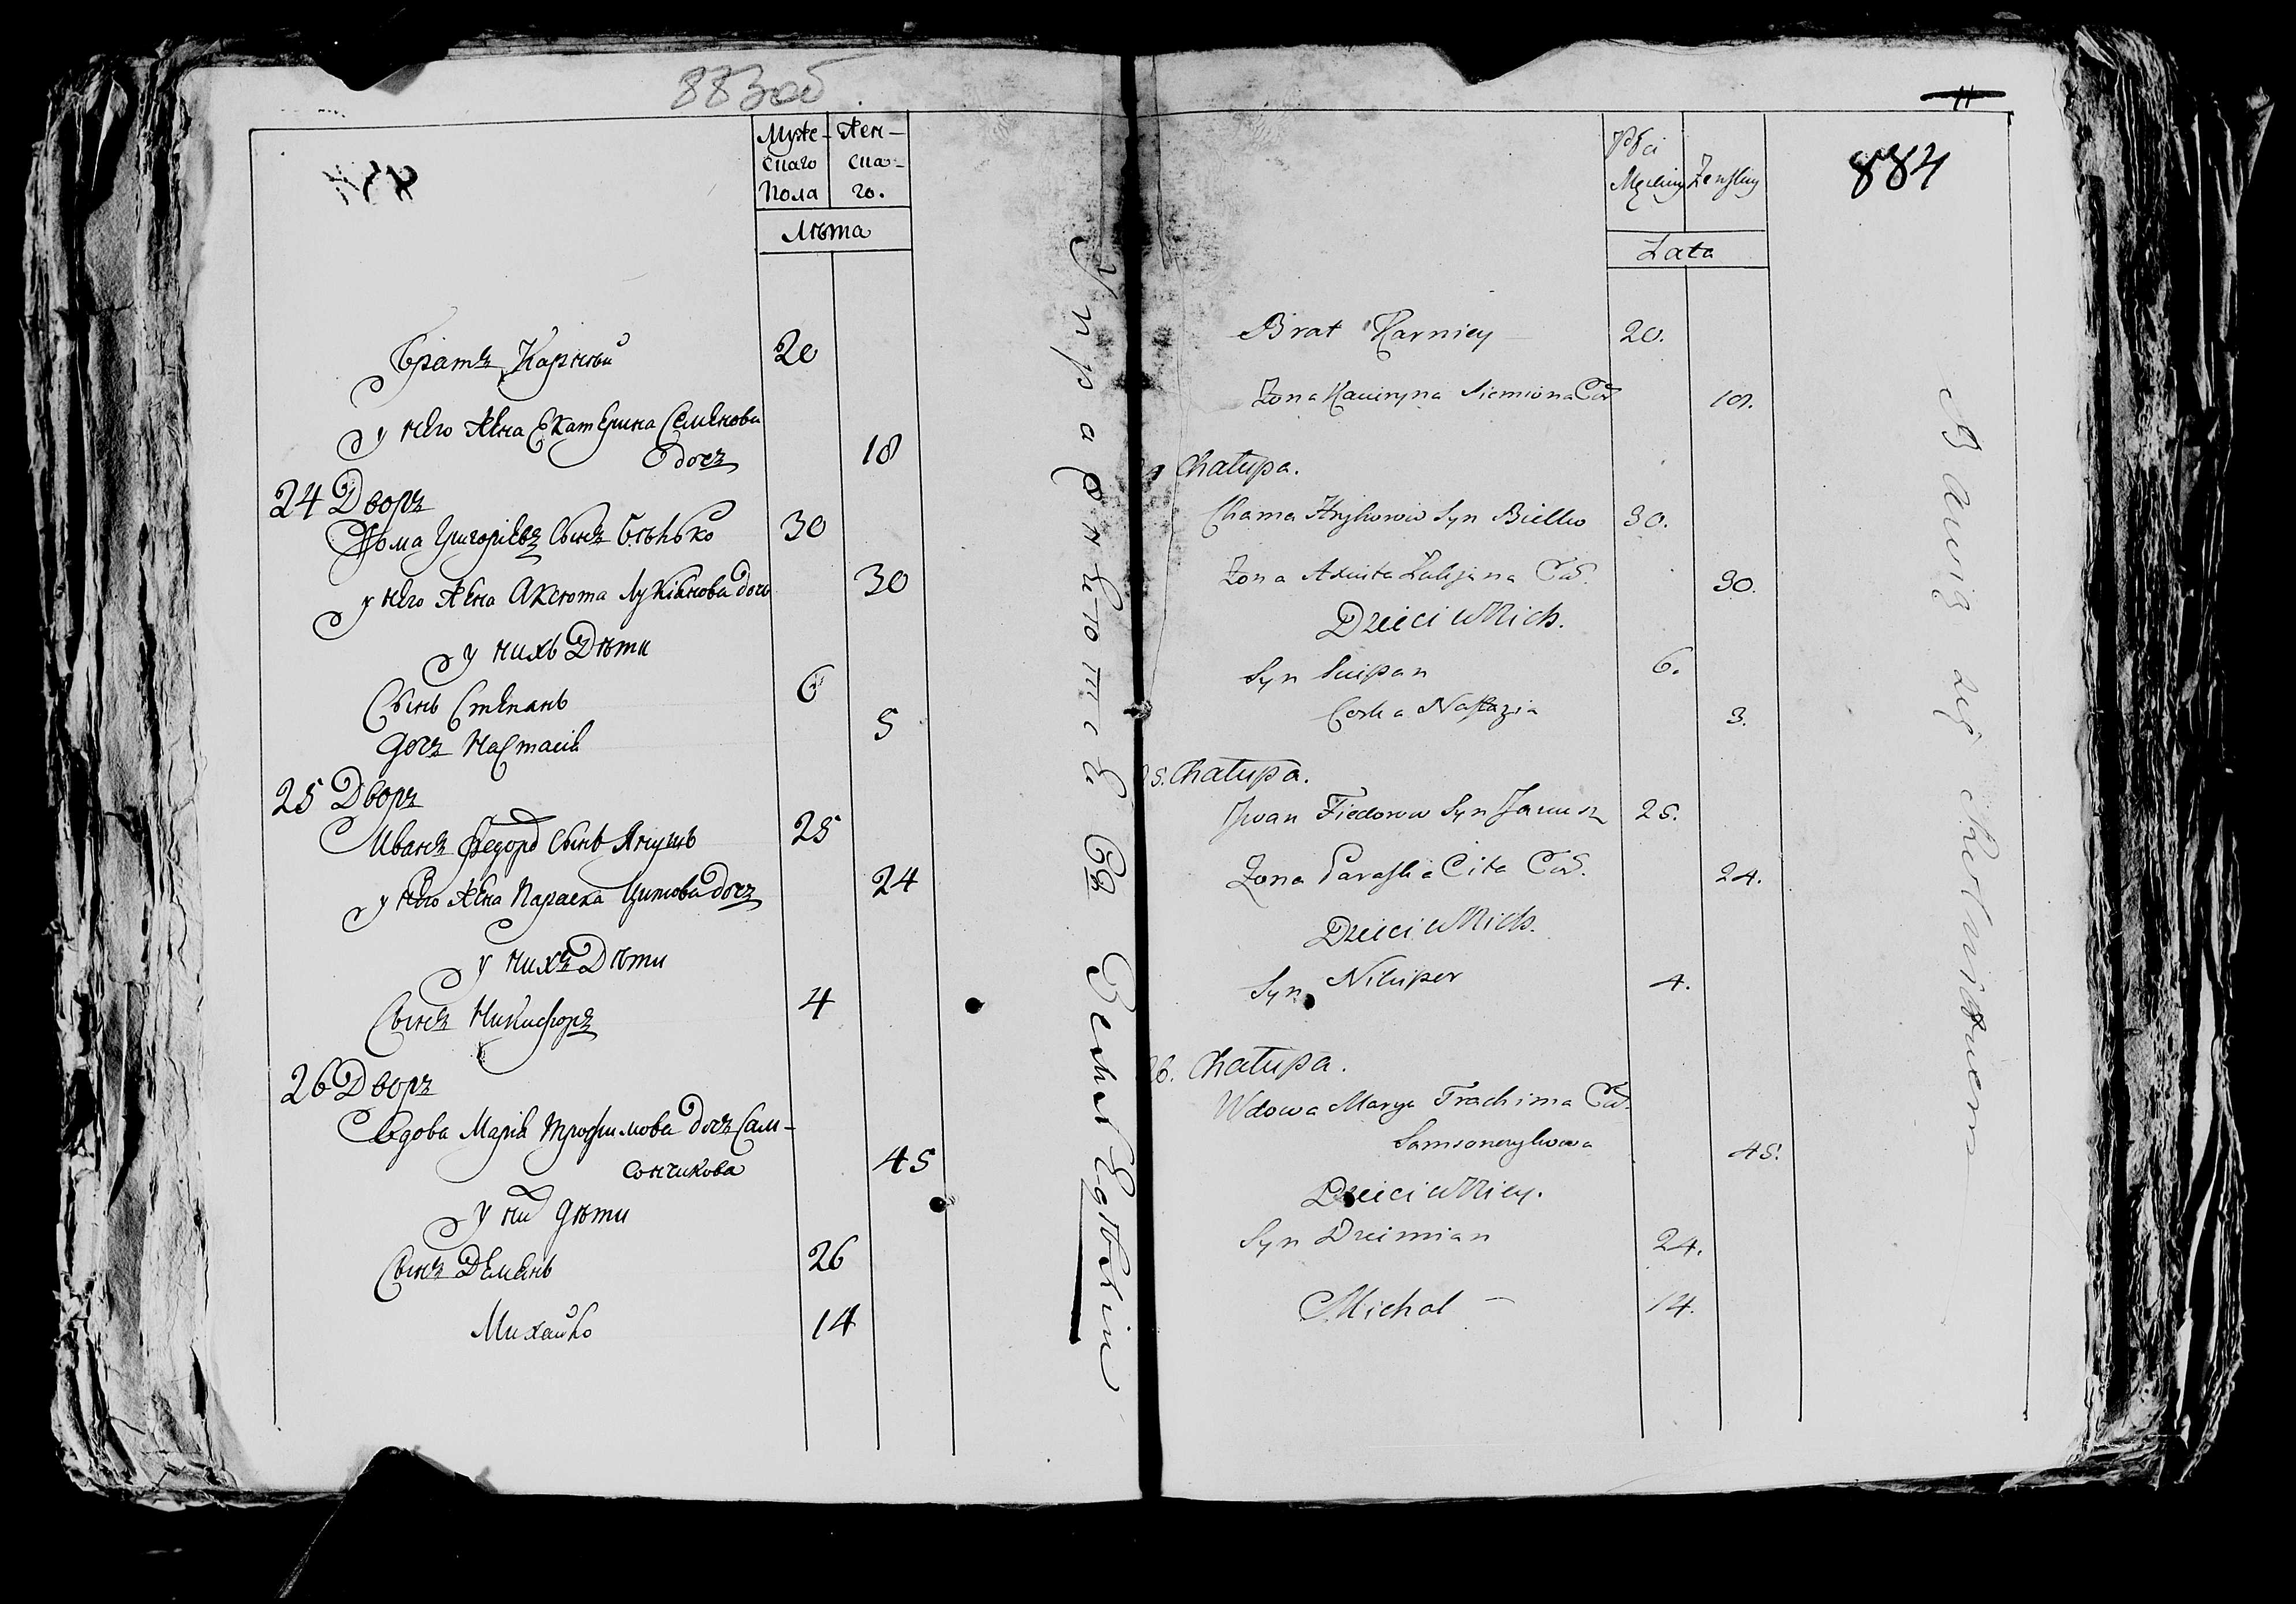 883об
Муже- Жен-
скаго ска-
пола го.
Лѣта
Братъ Карнѣй 20
у него жена Екатерина Семенова
дочъ 18
24 Дворъ
Фома Григоріевъ сынъ Бѣлько 30
у него жена Аксюта Лукіянова дочь 30
у нихъ Дѣти
Сынъ Степанъ 6
дочъ Настасія 5
25 Дворъ
Иванъ Федоро сынъ Янушъ 25
у него жена Параска Цитова дочъ 24
у нихъ Дѣти
Сынъ Никифоръ 4
26 Дворъ
Вдова Марія Трофимова дочъ Сам-
сончикова 45
у ней дѣти
Сынъ Демянъ 26
Михайло 14
11
884
Płci
Męskiey Żeńskiey
Lata
Brat Karniey 20.
Żona Kateryna Siemiona Cór 18.
Chałupa.
Chama Hryhorow Syn Bielko 30.
Żona Axiuta Łukjana Cór. 30.
Dzieci u Nich.
Syn Sciepan 6.
Corka Nastazia 3.
25. Chałupa.
Jwan Fiedorow Syn Janusz 25.
Żona Paraska Cita Cór. 24.
Dzieci u Nich.
Syn Nikiper 4.
26. Chałupa.
Wdowa Marya Trachima Cór.
Samsonczykowa 45.
Dzieci u Niey.
Syn Dziemian 24.
Michał 14.